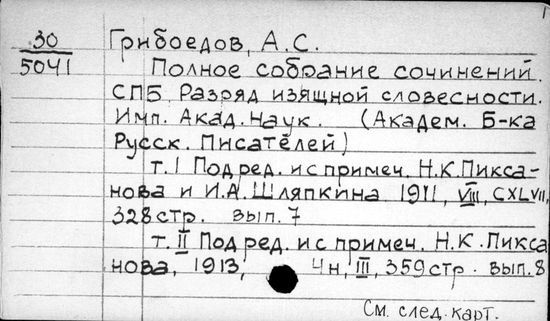 30 Грибоедов, А.С.
5041 Полное собрание сочинений.
СПБ. Разряд изящной словесности.
Имп. Акад. Наук. (Академ. Б-ка
Русск. Писателей)
т. I Под ред. и с примеч. Н.К. Пикса-
нова и И.А. Шляпкина 1911, VIII, CXLVII,
328 стр. вып. 7
т. II Под ред. и с примеч. Н.К. Пикса
нова, 1913, 4н, III, 359 стр. вып. 8
См. след. карт.